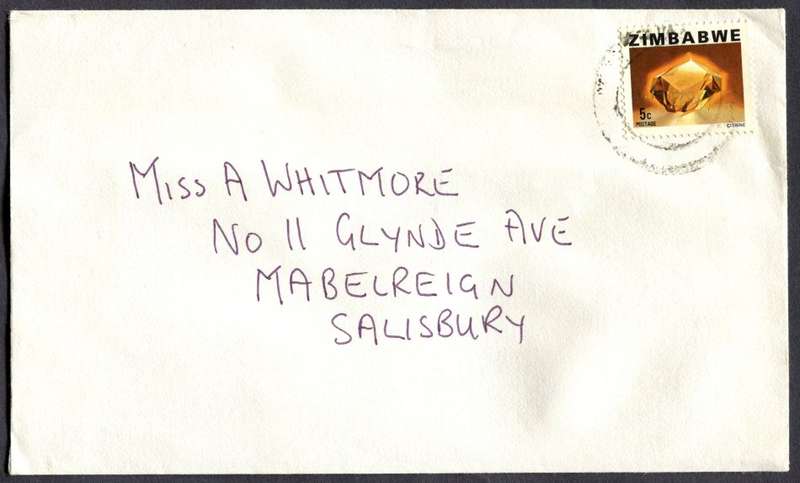 ZIMBABWE
5c
POSTAGE CITRINE
MISS A WHITMORE
NO 11 GLYNDE AVE
MABELREIGN
SALISBURY